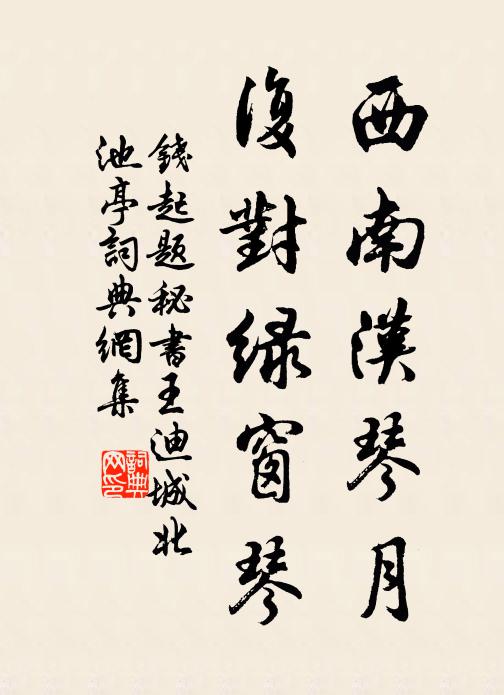 西南漢琴月
復對綠窗琴
錢起題秘書王迪城北
池亭詞典網集
詞典網印